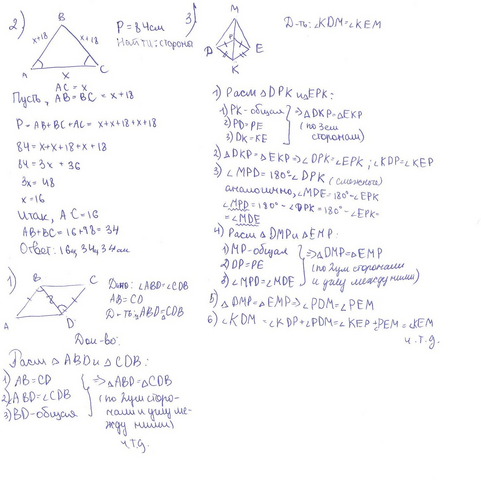 2)
B
x+18 x+18
A x C
P = 84см
Найти: стороны
AC = x
Пусть, AB = BC = x+18
P = AB+BC+AC = x+x+18+x+18
84 = x+x+18+x+18
84 = 3x + 36
3x = 48
x = 16
Итак, AC = 16
AB+BC = 16+98 = 34
Ответ: 16ц 34ц 34см
1)
B C
A D
Дано: ∠ABD=∠CDB
AB = CD
Д-ть: △ABD=△CDB
Док-во:
Расм △ABD и △CDB:
1) AB = CD
2) ABD=∠CDB
3) BD-общая
⇒△ABD=△CDB
(по 2ум сторо-
нами и углу ме-
жду ними)
ч.т.д.
3)
M
D P E
K
Д-ть: ∠KDM=∠KEM
1) Расм △DPK и △EPK:
1) PK-общая
2) PD=PE
3) DK=KE
⇒△DKP=△EKP
(по 3ем
сторонам)
2) △DKP=△EKP⇒∠DPK=∠EPK; ∠KDP=∠KEP
3) ∠MPD=180°∠DPK (смежного)
аналогично, ∠MDE=180°-∠EPK
∠MPD=180°-∠DPK=180°-∠EPK=
=∠MDE
4) Расм △DMP и △EMP:
1) MP-общая
2) DP=PE
3) ∠MPD=∠MDE
⇒△DMP=△EMP
(по 2ум сторонами
и углу между ними)
5) △DMP=△EMP⇒∠PDM=∠PEM
6) ∠KDM=∠KDP+∠PDM=∠KEP+PEM=∠KEM
ч.т.д.